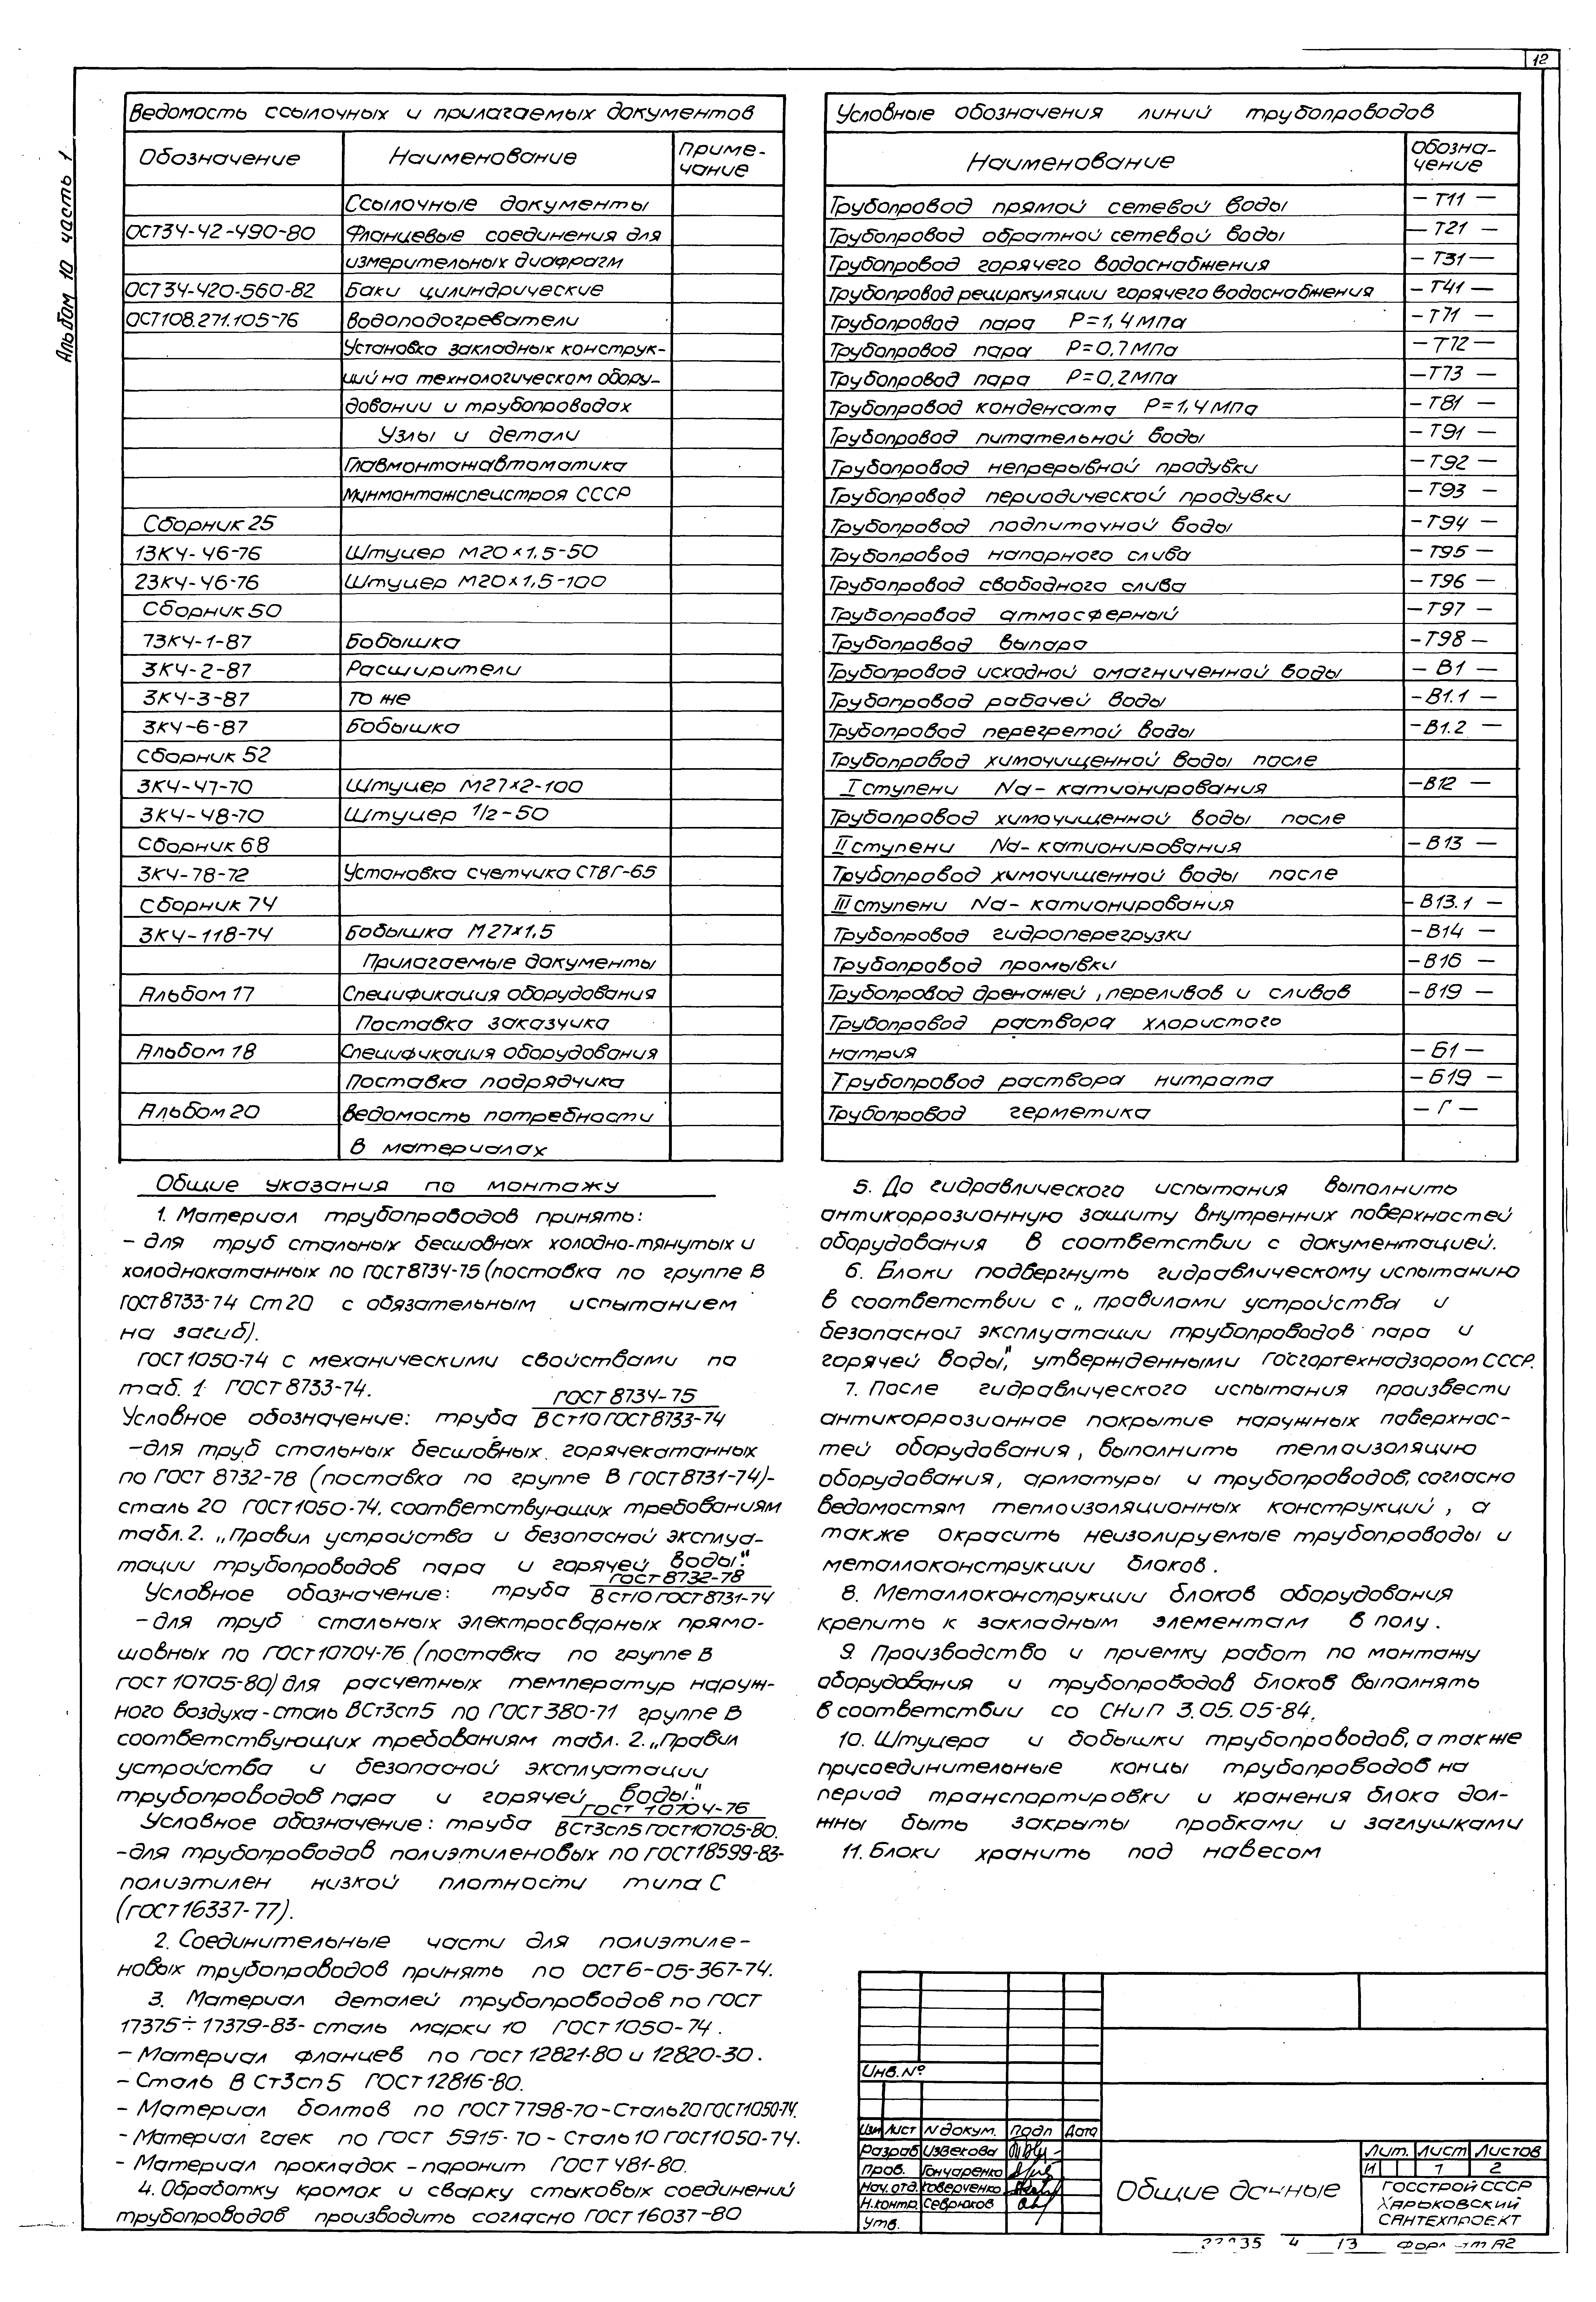 12
Альбом 10 часть 1
Ведомость ссылочных и прилагаемых документов
Обозначение Наименование Приме-
чание
Ссылочные документы
ОСТ34-42-490-80 Фланцевые соединения для
измерительных диафрагм
ОСТ34-420-560-82 Баки цилиндрические
ОСТ108.271.105-76 Водоподогреватели
Установка закладных конструк-
ций на технологическом обору-
довании и трубопроводах
Узлы и детали
Главмонтажавтоматика
Минмонтажспецстроя СССР
Сборник 25
13К4-46-76 Штуцер М20×1,5-50
23К4-46-76 Штуцер М20×1,5-100
Сборник 50
73К4-1-87 Бобышка
3К4-2-87 Расширители
3К4-3-87 То же
3К4-6-87 Бобышка
Сборник 52
3К4-47-70 Штуцер М27×2-100
3К4-48-70 Штуцер 1/2-50
Сборник 68
3К4-78-72 Установка счетчика СТВГ-65
Сборник 74
3К4-118-74 Бобышка М27×1,5
Прилагаемые документы
Альбом 17 Спецификация оборудования
Поставка заказчика
Альбом 18 Спецификация оборудования
Поставка подрядчика
Альбом 20 Ведомость потребности
в материалах
Общие указания по монтажу
1. Материал трубопроводов принять:
- для труб стальных бесшовных холодно-тянутых и
холоднокатанных по ГОСТ8734-75 (поставка по группе В
ГОСТ8733-74 Ст20 с обязательным испытанием
на загиб).
ГОСТ1050-74 с механическими свойствами по
таб. 1 ГОСТ 8733-74.
Условное обозначение: труба ГОСТ 8734-75
ВСт10 ГОСТ8733-74
- для труб стальных бесшовных горячекатанных
по ГОСТ 8732-78 (поставка по группе В ГОСТ8731-74)-
сталь 20 ГОСТ1050-74. соответствующих требованиям
табл. 2. „Правил устройства и безопасной эксплуа-
тации трубопроводов пара и горячей воды".
Условное обозначение: труба ГОСТ8732-78
В Ст10 ГОСТ8731-74
- для труб стальных электросварных прямо-
шовных по ГОСТ10704-76 (поставка по группе В
ГОСТ10705-80) для расчетных температур наруж-
ного воздуха - сталь ВСт3сп5 по ГОСТ380-71 группе В
соответствующих требованиям табл. 2. „Правил
устройства и безопасной эксплуатации
трубопроводов пара и горячей воды."
Условное обозначение: труба ГОСТ 10704-76
ВСт3сп5 ГОСТ10705-80.
-для трубопроводов полиэтиленовых по ГОСТ18599-83-
полиэтилен низкой плотности типа С
(ГОСТ16337-77).
2. Соединительные части для полиэтиле-
новых трубопроводов принять по ОСТ6-05-367-74.
3. Материал деталей трубопроводов по ГОСТ
17375÷17379-83- сталь марки 10 ГОСТ1050-74.
- Материал фланцев по ГОСТ12821-80 и 12820-30.
- Сталь В Ст3сп5 ГОСТ12816-80.
- Материал болтов по ГОСТ7798-70-Сталь20 ГОСТ1050-74.
- Материал гаек по ГОСТ 5915-70 - Сталь10 ГОСТ1050-74.
- Материал прокладок - паронит ГОСТ 481-80.
4. Обработку кромок и сварку стыковых соединений
трубопроводов производить согласно ГОСТ 16037-80
Условные обозначения линий трубопроводов
Наименование Обозна-
чение
Трубопровод прямой сетевой воды - Т11 -
Трубопровод обратной сетевой воды - Т21 -
Трубопровод горячего водоснабжения - Т31 -
Трубопровод рециркуляции горячего водоснабжения - Т41 -
Трубопровод пара Р=1,4МПа - Т71
Трубопровод пара Р=0,7МПа - Т72 -
Трубопровод пара Р=0,2МПа - Т73 -
Трубопровод конденсата Р=1,4МПа - Т81 -
Трубопровод питательной воды - Т91 -
Трубопровод непрерывной продувки - Т92 -
Трубопровод периодической продувки - Т93 -
Трубопровод подпиточной воды - Т94 -
Трубопровод напорного слива - Т95 -
Трубопровод свободного слива - Т96 -
Трубопровод атмосферный - Т97 -
Трубопровод выпара - Т98 -
Трубопровод исходной омагниченной воды - В1 -
Трубопровод рабочей воды - В1.1 -
Трубопровод перегретой воды - В1.2 -
Трубопровод химочищенной воды после
I ступени Na-катионирования - В12 -
Трубопровод химочищенной воды после
II ступени Na-катионирования - В13 -
Трубопровод химочищенной воды после
III ступени Na-катионирования - В13.1 -
Трубопровод гидроперегрузки - В14 -
Трубопровод промывки - В16 -
Трубопровод дренажей, переливов и сливов - В19 -
Трубопровод раствора хлористого
натрия - Б1 -
Трубопровод раствора нитрата - Б19 -
Трубопровод герметика - Г -
5. До гидравлического испытания выполнить
антикоррозионную защиту внутренних поверхностей
оборудования в соответствии с документацией.
6. Блоки подвергнуть гидравлическому испытанию
в соответствии с „правилами устройства и
безопасной эксплуатации трубопроводов пара и
горячей воды", утвержденными Госгортехнадзором СССР.
7. После гидравлического испытания произвести
антикоррозионное покрытие наружных поверхнос-
тей оборудования, выполнить теплоизоляцию
оборудования, арматуры и трубопроводов, согласно
ведомостям теплоизоляционных конструкций, а
также окрасить неизолируемые трубопроводы и
металлоконструкции блоков.
8. Металлоконструкции блоков оборудования
крепить к закладным элементам в полу.
9. Производство и приемку работ по монтажу
оборудования и трубопроводов блоков выполнять
в соответствии со СНиП 3.05.05-84.
10. Штуцера и бобышки трубопроводов, а также
присоединительные концы трубопроводов на
период транспортировки и хранения блока дол-
жны быть закрыты пробками и заглушками
11. Блоки хранить под навесом
Инв. №
Изм Лист N докум. Подп Дата
Разраб Извекова
Пров. Гончаренко
Нач. отд. Коверченко
Н.контр. Севрюков
Утв.
Общие данные
Лит. Лист Листов
И 1 2
ГОССТРОЙ СССР
ХАРЬКОВСКИЙ
САНТЕХПРОЕКТ
35 4 13 А2